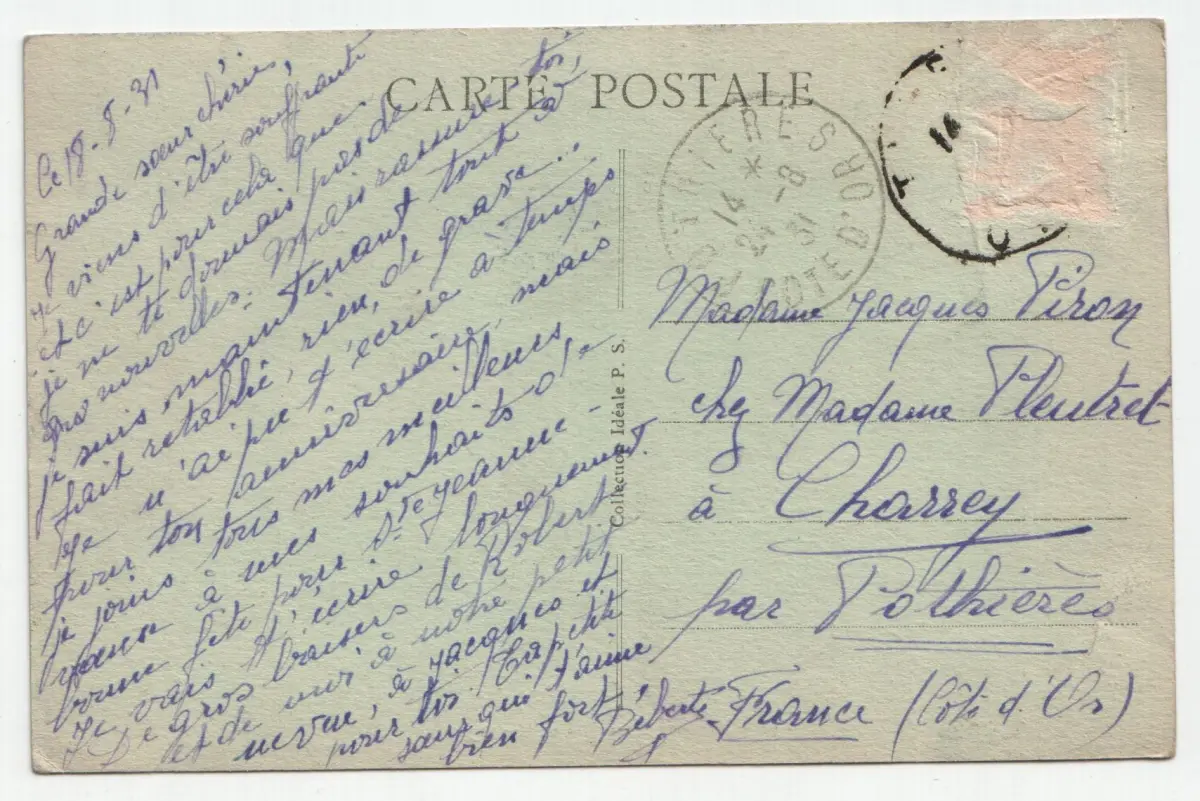 CARTE POSTALE
Ce 18-8-31
Grande sœur chérie,
Je viens d'être souffrante
et c'est pour cela que
je ne te donnais pas de
nouvelles. Mais rassure-toi,
je suis maintenant tout à
fait rétablie, rien de grave...
Je n'ai pu t'écrire à temps
pour ton anniversaire, mais
je joins tous mes meilleurs
vœux à mes souhaits d'
bonne fête pour Ste Jeanne-
Je vais t'écrire longuement.
De gros baisers de Robert
et de moi à notre petit
neveu, à Jacques et
pour toi. Ta petite
sœur qui t'aime
bien fort
Béberte
Collection Idéale P. S.
POTHIERES
14
24-8
31
COTE D'OR
Madame Jacques Piron
chez Madame Pleutret
à Charrey
par Pothières
France (Côte d'Or)